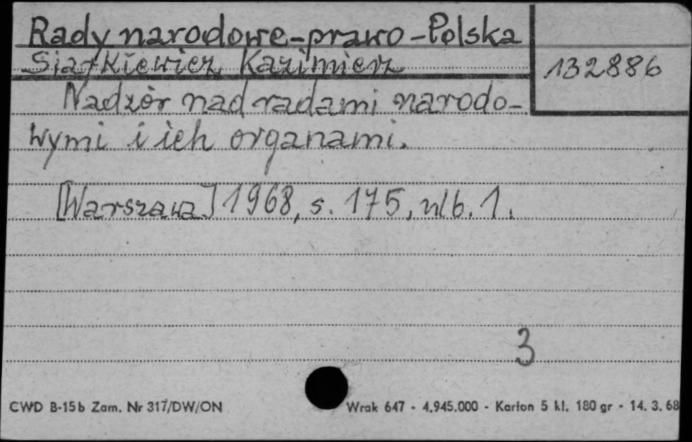 Rady narodowe - prawo - Polska
Siarkiewicz Kazimierz
132886
Nadzór nad radami narodo-
wymi i ich organami.
[Warszawa] 1968, s. 175, nlb. 1.
3
CWD B-15b Zam. Nr 317/DW/ON
Wrak 647 - 4.945.000 - Karton 5 kl. 180 gr - 14. 3. 68